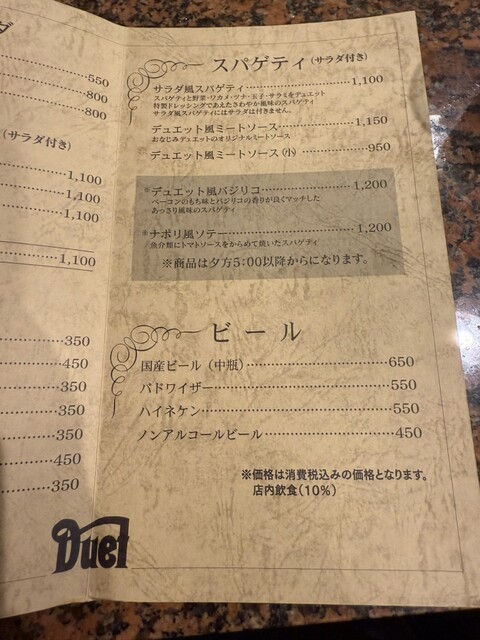 ダ
550
800
800
(サラダ付き)
1,100
1,100
1,100
1,100
350
450
350
350
350
450
350
Duet
スパゲティ(サラダ付き)
サラダ風スパゲティ 1,100
スパゲティと野菜・ワカメ・ツナ・玉子・サラミをデュエット
特製ドレッシングであえたさわやか風味のスパゲティ
サラダ風スパゲティにはサラダは付きません。
デュエット風ミートソース 1,150
おなじみデュエットのオリジナルミートソース
デュエット風ミートソース(小) 950
※デュエット風バジリコ 1,200
ベーコンのもち味とバジリコの香りが良くマッチした
あっさり風味のスパゲティ
※ナポリ風ソテー 1,200
魚介類にトマトソースをからめて焼いたスパゲティ
※商品は夕方5:00以降からになります。
ビール
国産ビール(中瓶) 650
バドワイザー 550
ハイネケン 550
ノンアルコールビール 450
※価格は消費税込みの価格となります。
店内飲食(10%)